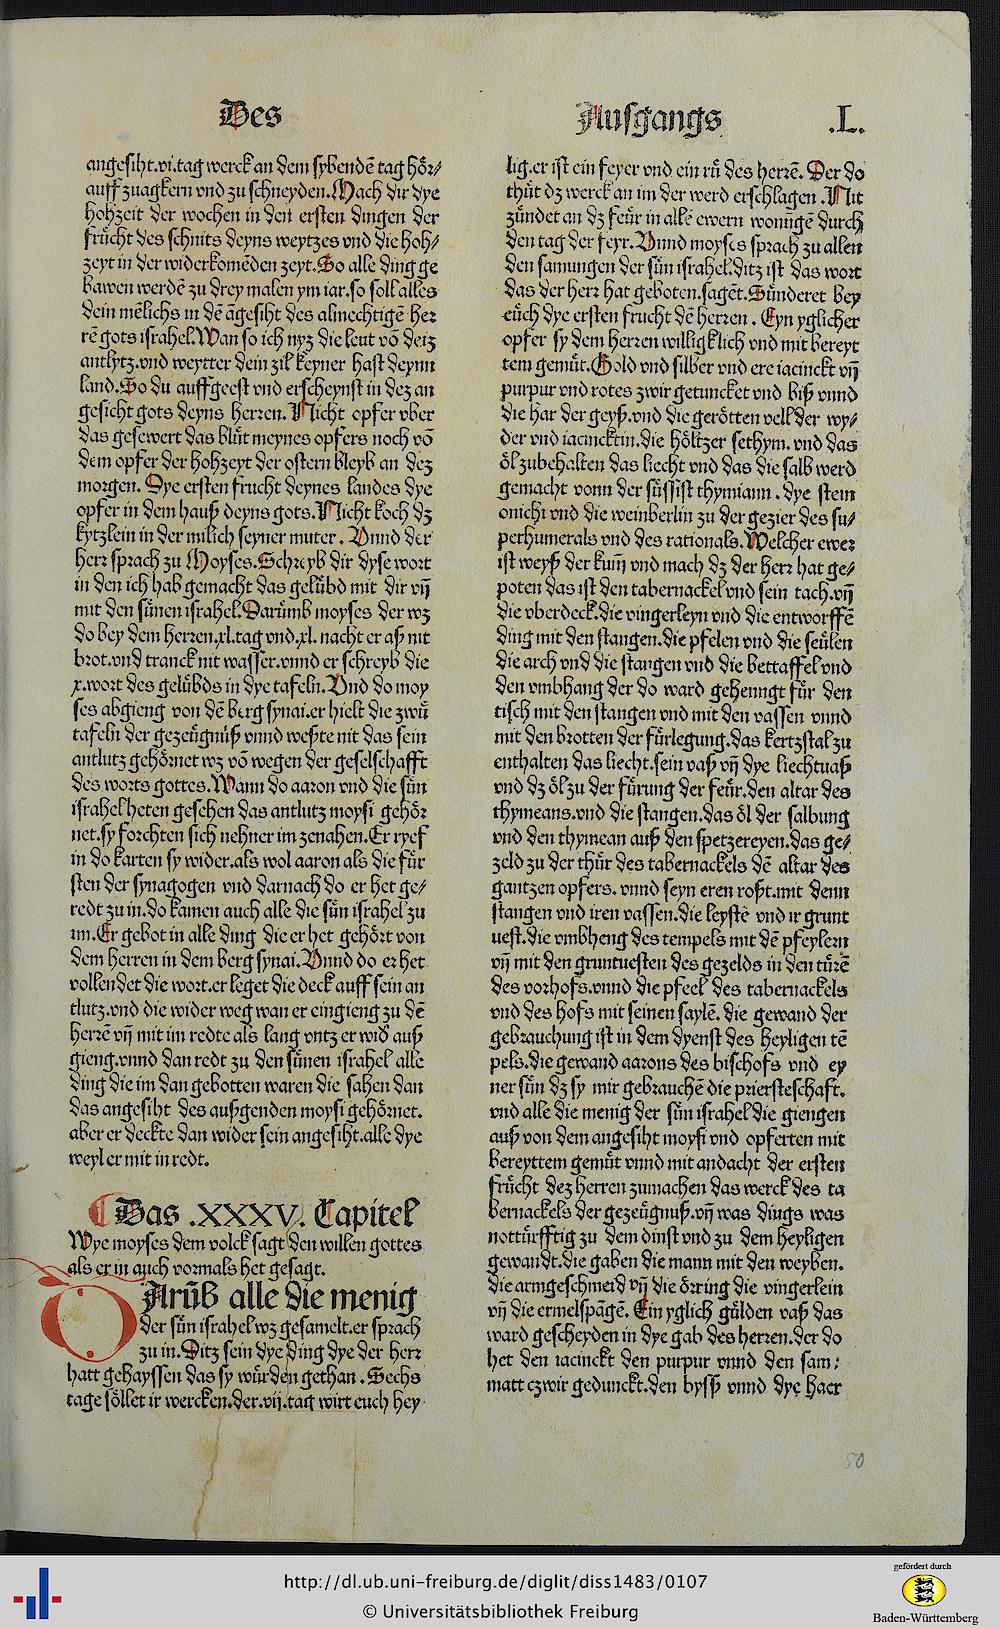 Des
Ausgangs
.L.
angesiht.vi.tag werck an dem sybendē tag hör⸗
auff zuagkern vnd zu schneyden.Mach dir dye
hohzeit der wochen in den ersten dingen der
frücht des schnits deyns weytzes vnd die hoh⸗
zeyt in der widerkomēden zeyt.So alle ding ge
bawen werdē zu drey malen ym iar.so soll alles
dein mēlichs in dē āgesiht des almechtigē her
rē gots israhel.Wan so ich nyz die leut vō deiz
antlytz.vnd weytter dein zil keyner hast deynn
land.So du auffgeest vnd erscheynst in dez an
gesicht gots deyns herren.Nicht opfer vber
das gesewert das blůt meynes opfers noch vō
dem opfer der hohzeyt der ostern bleyb an dez
morgen. Dye ersten frucht deynes landes dye
opfer in dem hauß deyns gots.Nicht koch dz
kytzlein in der milich seyner muter. Vnnd der
herr sprach zu Moyses.Schreyb dir dyse wort
in den ich hab gemacht das gelübd mit dir vn̄
mit den sünen israhel.Darümb moyses der wz
do bey dem herren.xl.tag vnd.xl. nacht er aß nit
brot.vnd tranck nit wasser.vnnd er schreyb die
x.wort des gelübds in dye tafeln.Vnd do moy
ses abgieng von dē berg synai.er hielt die zwů
tafeln der gezeügnüß vnnd weßte nit das sein
antlutz gehörnet wz vō wegen der geselschafft
des worts gottes.Wann do aaron vnd die sün
israhel heten gesehen das antlutz moysi gehör
net.sy forchten sich nehner im zenahen.Er ryef
in do karten sy wider.als wol aaron als die für
sten der synagogen vnd darnach do er het ge⸗
redt zu in.do kamen auch alle die sün israhel zu
im.Er gebot in alle ding die er het gehört von
dem herren in dem berg synai.Vnnd do er het
vollendet die wort.er leget die deck auff sein an
tlutz.vnd die wider weg wan er eingieng zu dē
herrē vn̄ mit im redte als lang vntz er wid auß
gieng.vnnd dan redt zu den sünen israhel alle
ding die im dan gebotten waren die sahen dan
das angesiht des außgenden moysi gehörnet.
aber er deckte dan wider sein angesiht.alle dye
weyl er mit in redt.
Das .XXXV. Capitel
Wye moyses dem volck sagt den willen gottes
als er in auch vormals het gesagt.
DArūb alle die menig
der sün israhel wz gesamelt.er sprach
zu in.Ditz sein dye ding dye der herr
hatt gehayssen das sy würden gethan. Sechs
tage söllet ir wercken.der.vij.tag wirt euch hey
lig.er ist ein feyer vnd ein rů des herrē. Der do
thůt dz werck an im der werd erschlagen.Nit
zündet an dz feür in allē ewern wonūgē durch
den tag der feyr.Vnnd moyses sprach zu allen
den samungen der sün israhel.ditz ist das wort
das der herr hat geboten.sagēt.Sünderet bey
eüch dye ersten frucht dē herren. Eyn yglicher
opfer sy dem herren williglich vnd mit bereyt
tem gemüt.Gold vnd silber vnd ere iacinckt vn̄
purpur vnd rotes zwir getuncket vnd biß vnnd
die har der geyß.vnd die gerötten vell der wy⸗
der vnd iacincktin.die höltzer sethym.vnd das
öl zubehalten das liecht vnd das die salb werd
gemacht vonn der süssist thymiann. dye stein
onichi vnd die weinberlin zu der gezier des su⸗
perhumerals vnd des rationals.Welcher ewer
ist weyß der kum̄ vnd mach dz der herr hat ge⸗
poten das ist den tabernackel vnd sein tach.vn̄
die vberdeck.die vingerleyn vnd die entworffē
ding mit den stangen.die pfelen vnd die seülen
die arch vnd die stangen vnd die bettaffel vnd
den vmbhang der do ward gehenngt für den
tisch mit den stangen vnd mit den vassen vnnd
mit den brotten der fürlegung.das kertzstal zu
enthalten das liecht.sein vaß vn̄ dye liechtuaß
vnd dz öl zu der fürung der feür.den altar des
thymeans.vnd die stangen.das öl der salbung
vnd den thymean auß den spetzereyen.das ge⸗
zeld zu der thür des tabernackels dē altar des
gantzen opfers. vnnd seyn eren roßt.mit denn
stangen vnd iren vassen.die leystē vnd ir grunt
uest.die vmbheng des tempels mit dē pfeylern
vn̄ mit den gruntuesten des gezelds in den türē
des vorhofs.vnnd die pfeel des tabernackels
vnd des hofs mit seinen saylē. die gewand der
gebrauchung ist in dem dyenst des heyligen tē
pels.die gewand aarons des bischofs vnd ey
ner sün dz sy mir gebrauchē die priersteschaft.
vnd alle die menig der sün israhel die giengen
auß von dem angesiht moysi vnd opferten mit
bereyttem gemüt vnnd mit andacht der ersten
frücht dez herren zumachen das werck des ta
bernackels der gezeügnuß.vn̄ was dings was
nottürfftig zu dem dinst vnd zu dem heyligen
gewandt.die gaben die mann mit den weyben.
die armgeschmeid vn̄ die örring die vingerlein
vn̄ die ermelspāgē. Ein yglich gülden vaß das
ward gescheyden in dye gab des herren.der do
het den iacinckt den purpur vnnd den sam:
matt czwir gedunckt.den byss vnnd dye haer
50
http://dl.ub.uni-freiburg.de/diglit/diss1483/0107
© Universitätsbibliothek Freiburg
gefördert durch
Baden-Württemberg